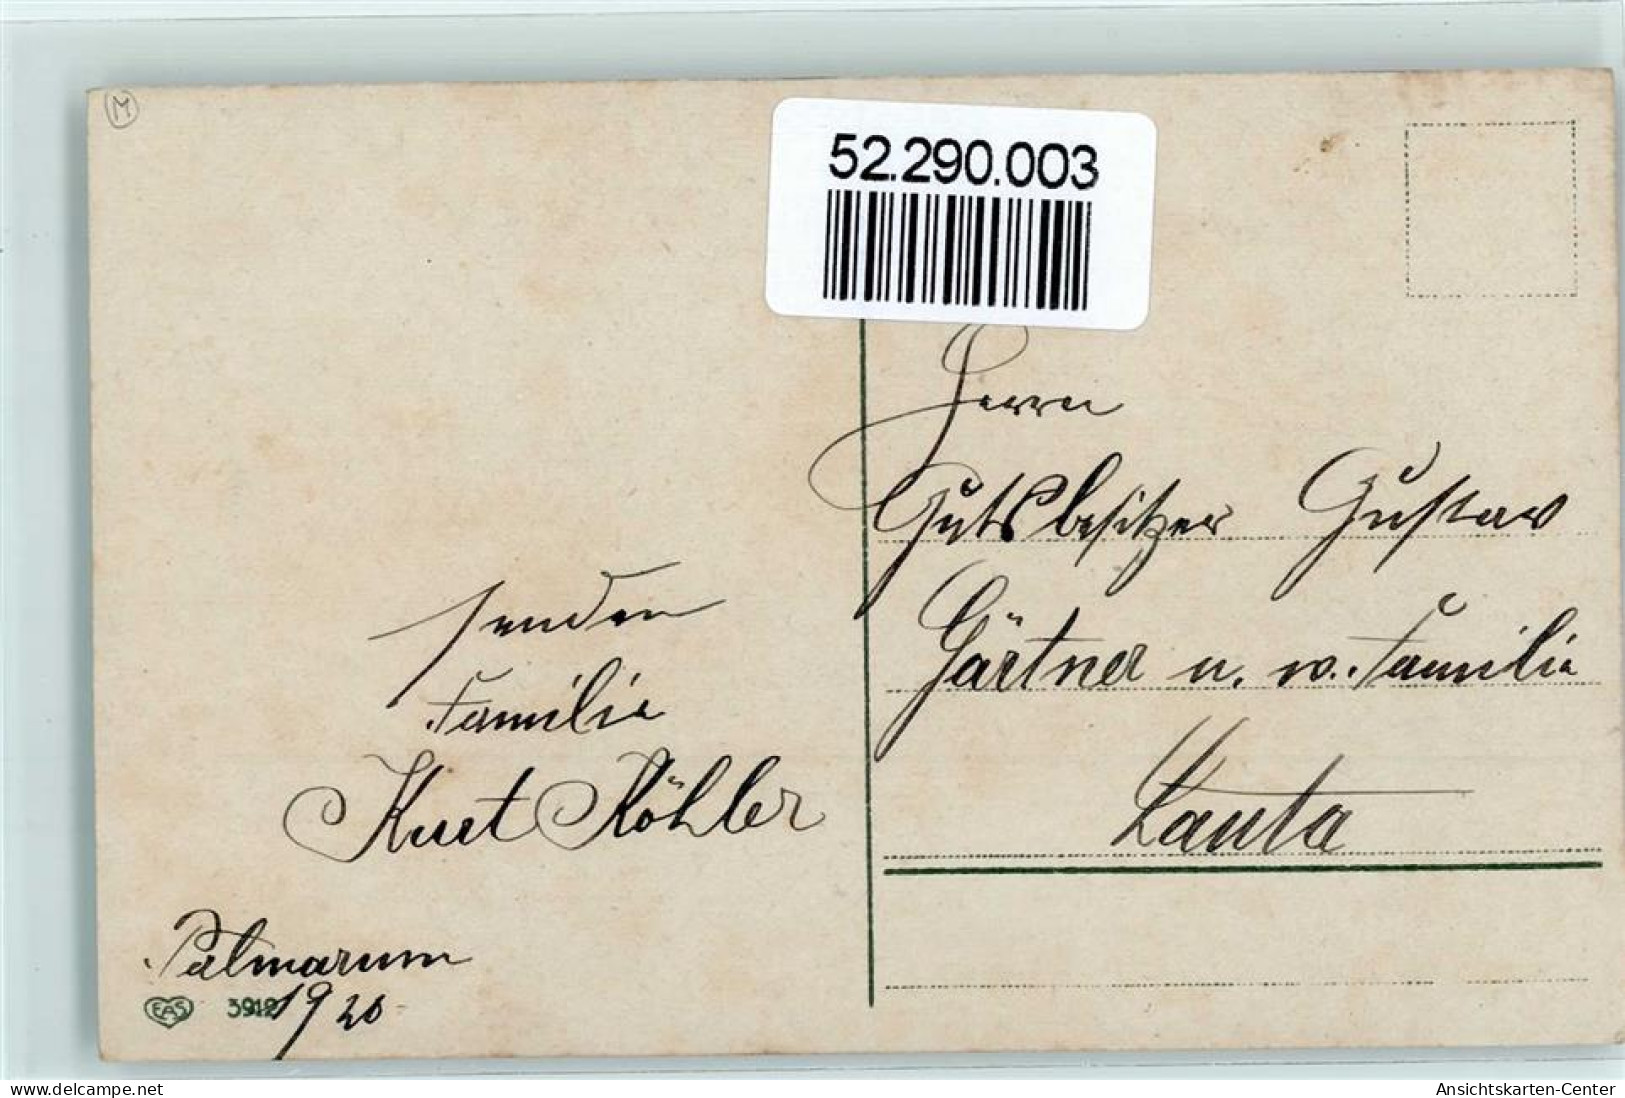 M
52.290.003
Herrn
Gutsbesitzer Gustav
Gärtner u. w. Familie
Lauta
senden
Familie
Kurt Köhler
Palmarum
1920
EAS 3912
www.delcampe.net
Ansichtskarten-Center